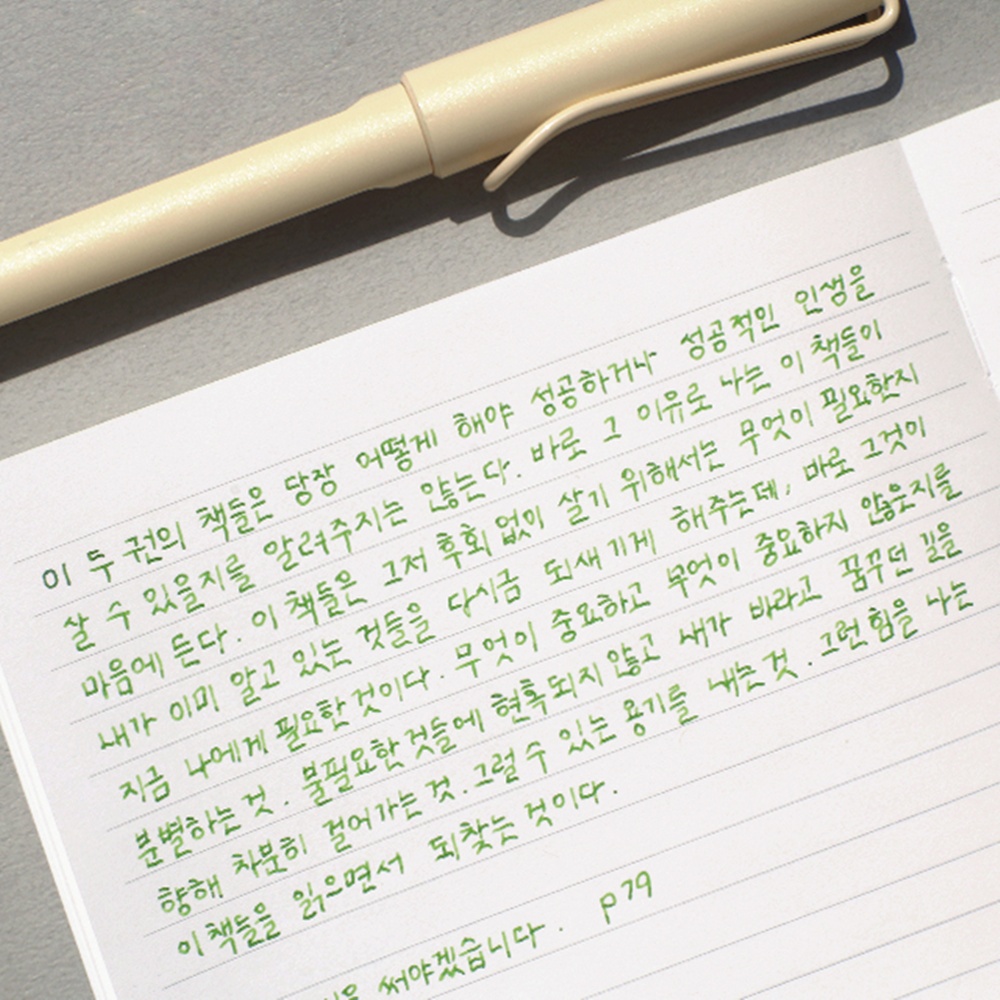 이 두 권의 책들은 당장 어떻게 해야 성공하거나 성공적인 인생을
살 수 있을지를 알려주지는 않는다. 바로 그 이유로 나는 이 책들이
마음에 든다. 이 책들은 그저 후회 없이 살기 위해서는 무엇이 필요한지
내가 이미 알고 있는 것들을 다시금 되새기게 해주는데, 바로 그것이
지금 나에게 필요한 것이다. 무엇이 중요하고 무엇이 중요하지 않은지를
분별하는 것. 불필요한 것들에 현혹되지 않고 내가 바라고 꿈꾸던 길을
향해 차분히 걸어가는 것. 그럴 수 있는 용기를 내는 것. 그런 힘을 나는
이 책들을 읽으면서 되찾는 것이다.
써야겠습니다. p79